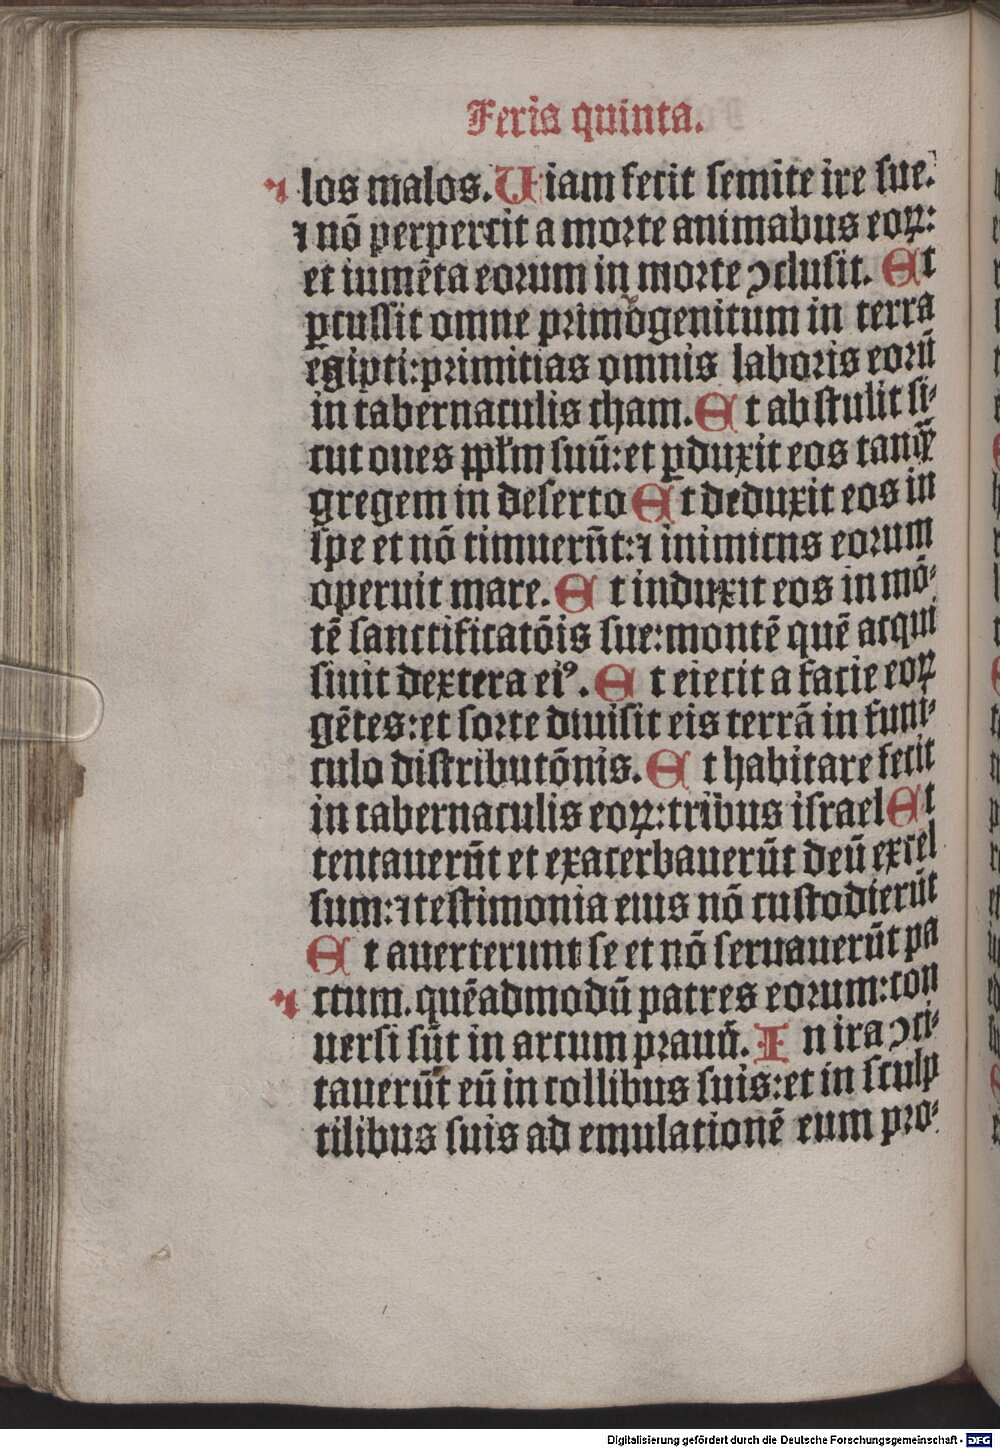 Feria quinta.
los malos. Uiam fecit semite ire sue.
⁊ nō perpercit a morte animabus eoꝝ:
et iumēta eorum in morte ↄclusit. Et
ꝑcussit omne primogenitum in terra
egipti: primitias omnis laboris eorū
in tabernaculis cham. Et abstulit si⸗
cut oues ppl̄m suū: et ꝑduxit eos tanqꝫ
gregem in deserto Et deduxit eos in
spe et nō timuerūt: ⁊ inimicus eorum
operuit mare. Et induxit eos in mō⸗
tē sanctificatōis sue: montē quē acqui
siuit dextera eiꝰ. Et eiecit a facie eoꝝ
gētes: et sorte diuisit eis terrā in funi⸗
culo distributōnis. Et habitare fecit
in tabernaculis eoꝝ: tribus israel Et
tentauerūt et exacerbauerūt deū excel
sum: ⁊ testimonia eius nō custodierūt
Et auerterunt se et nō seruauerūt pa
ctum. quēadmodū patres eorum: con
uersi sūt in arcum prauū. In ira ↄci⸗
tauerūt eū in collibus suis: et in sculp
tilibus suis ad emulationē eum pro⸗
Digitalisierung gefördert durch die Deutsche Forschungsgemeinschaft - DFG